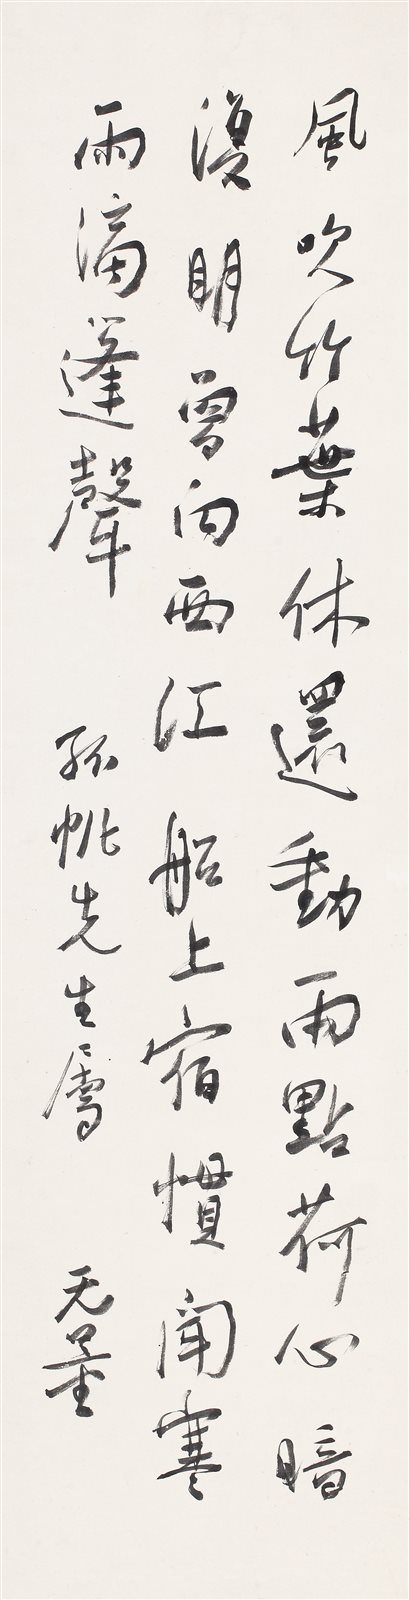 風吹竹葉休還動雨點荷心暗
復明曾向西江船上宿慣聞寒
雨滴篷聲 孤帆先生屬 无量